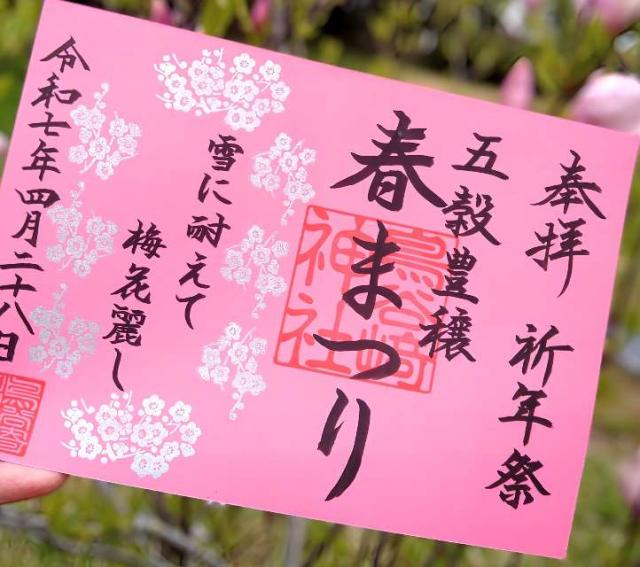 奉拝 祈年祭
五穀豊穣
春まつり
鳥谷崎神社
雪に耐えて
梅花麗し
令和七年四月二十八日